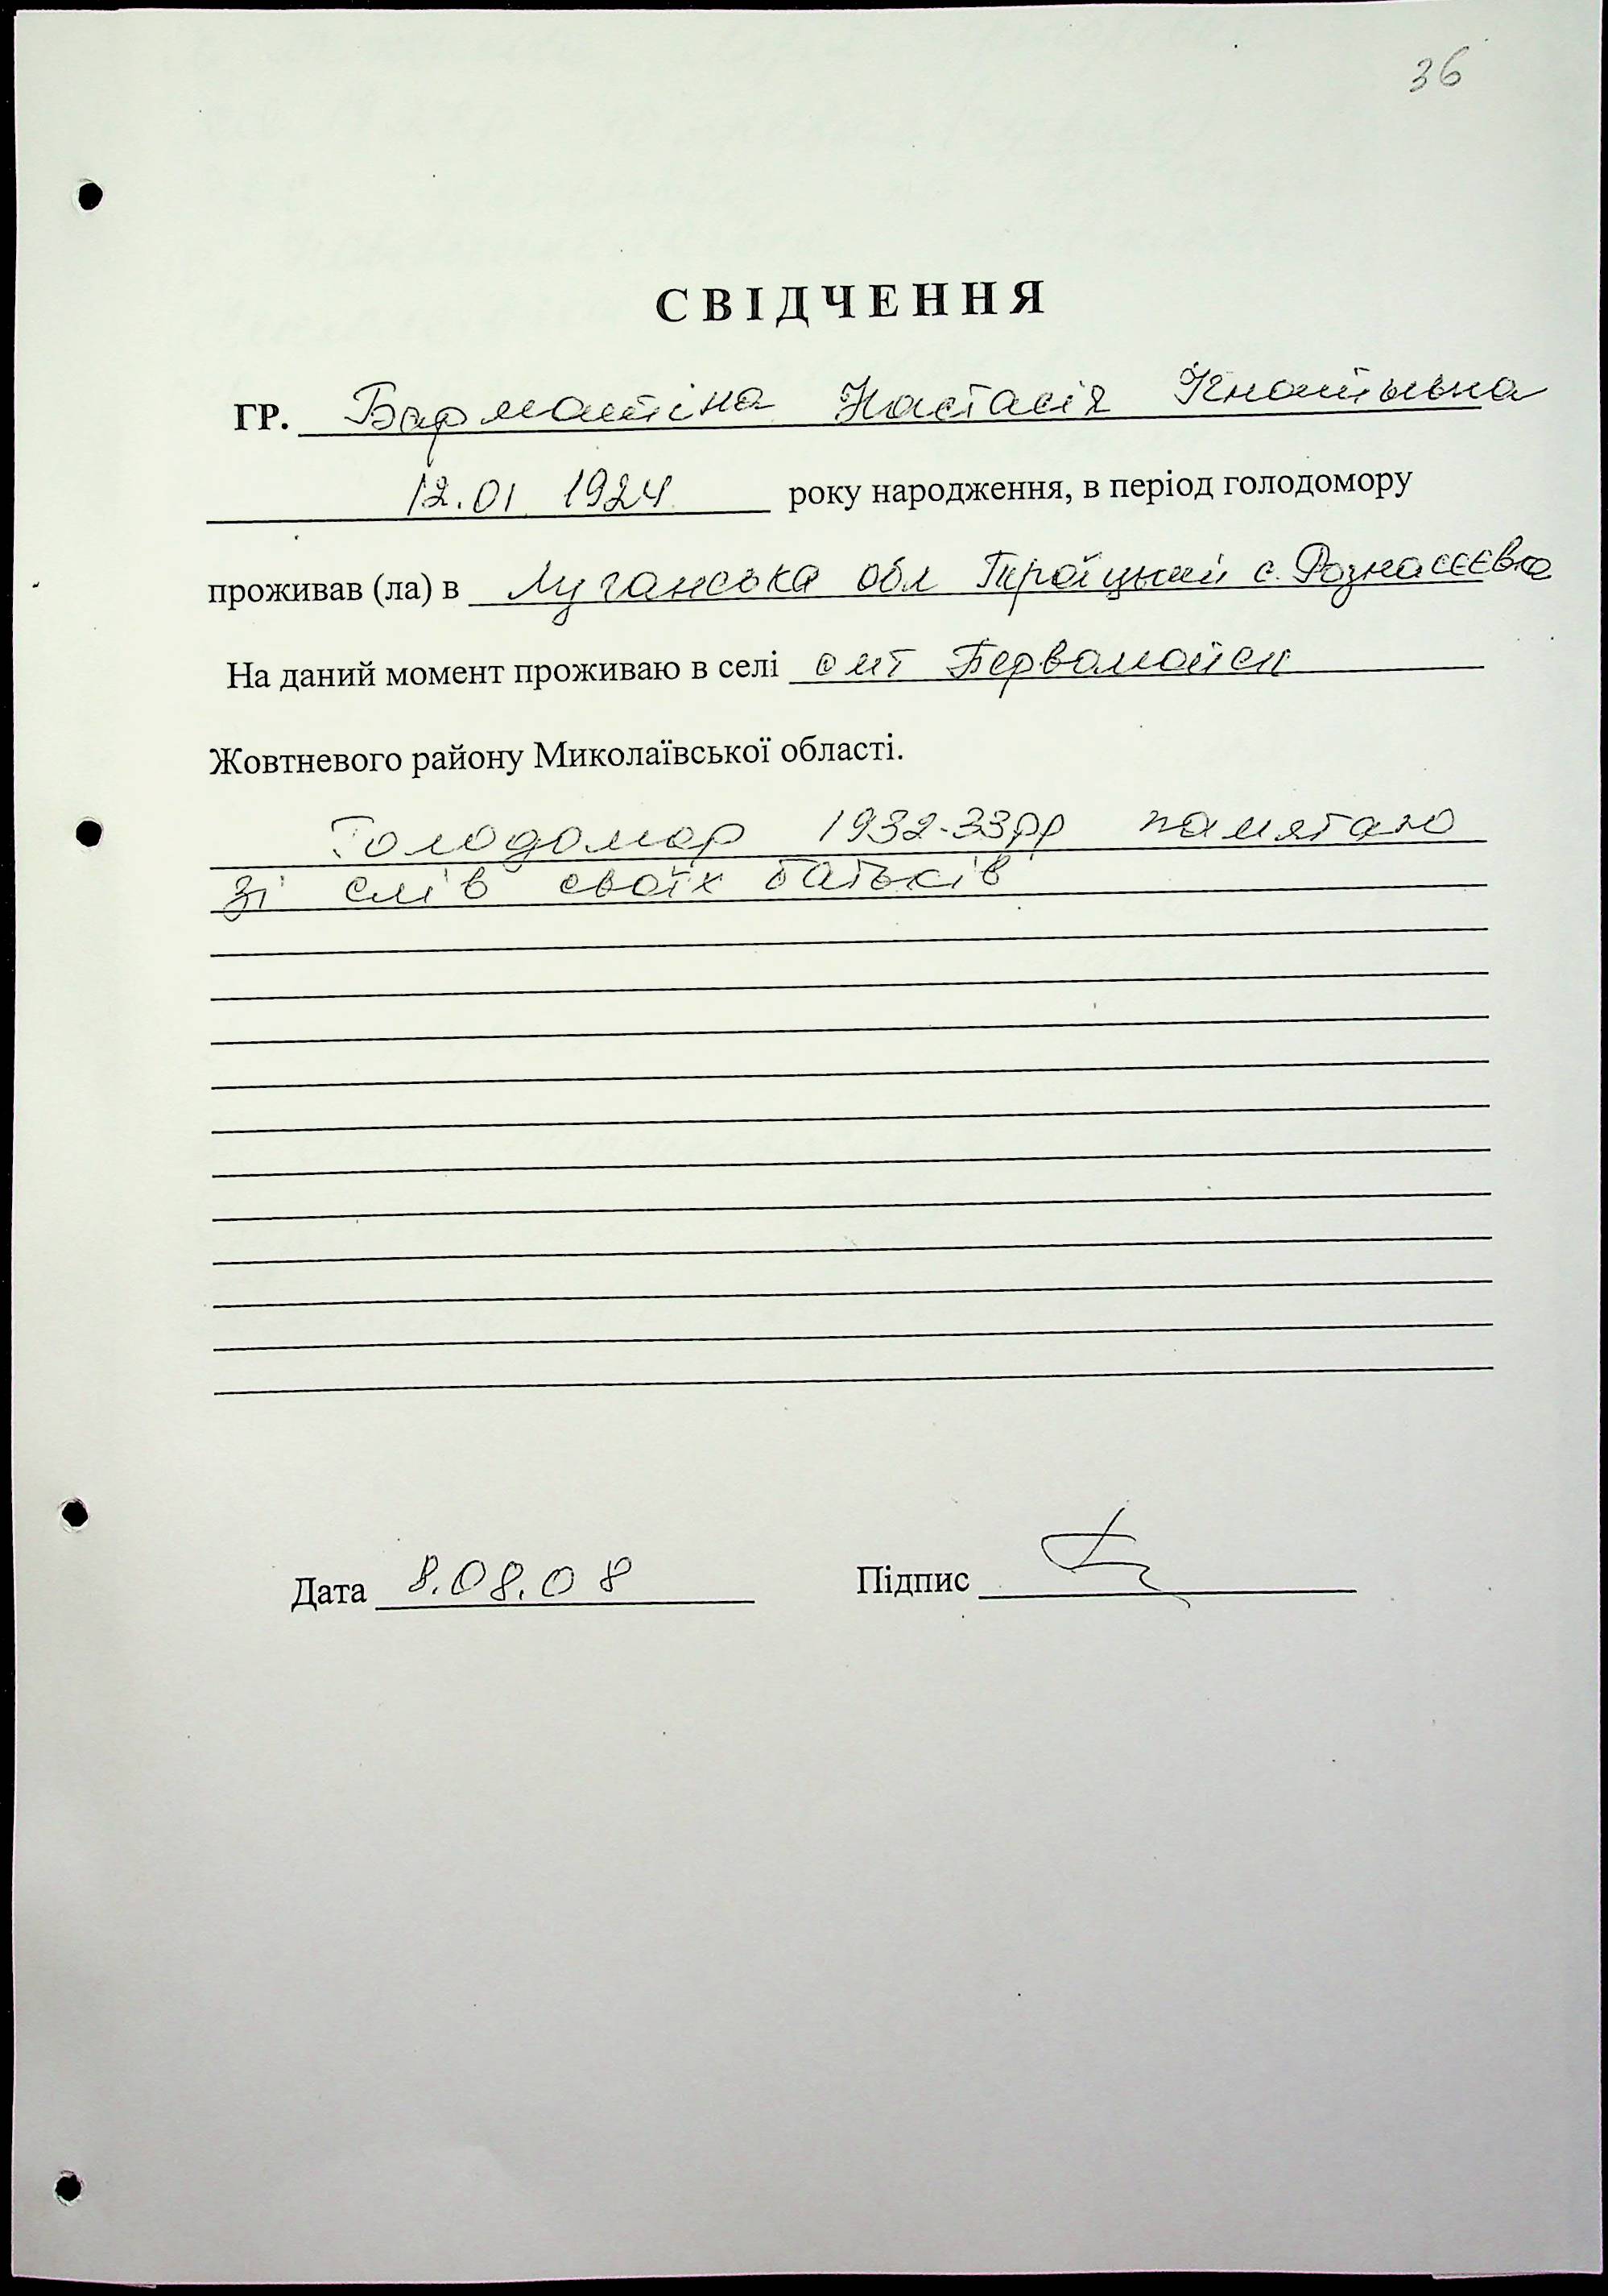 36
СВІДЧЕННЯ
ГР. Барматіна Настасія Ігнатьевна
12.01 1924 року народження, в період голодомору
проживав (ла) в Луганська обл Троїцький с.
На даний момент проживаю в селі смт Первомайск
Жовтневого району Миколаївської області.
Голодомор 1932-33рр памятаю
зі слів своїх батьків
Дата 8.08.08 Підпис